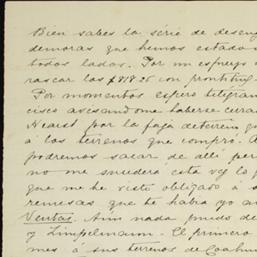 Bien sabes la série de desen
demoras que hemos estado
todos lados. Por mi
rascar los $818.25 con prontitu
Por momentos espero telegram
cisco avisandome haberse cerra
Hearst por la faja de terreno qu
á los terrenos que compró. A
podremos sacar de alli per
no me sucederá esta vez lo
que me he visto obligado á s
remesas que te habia yo a
Ventas. Aun nada puedo de
y Zimpelmann. El primero
mes á sus terrenos de Coahu